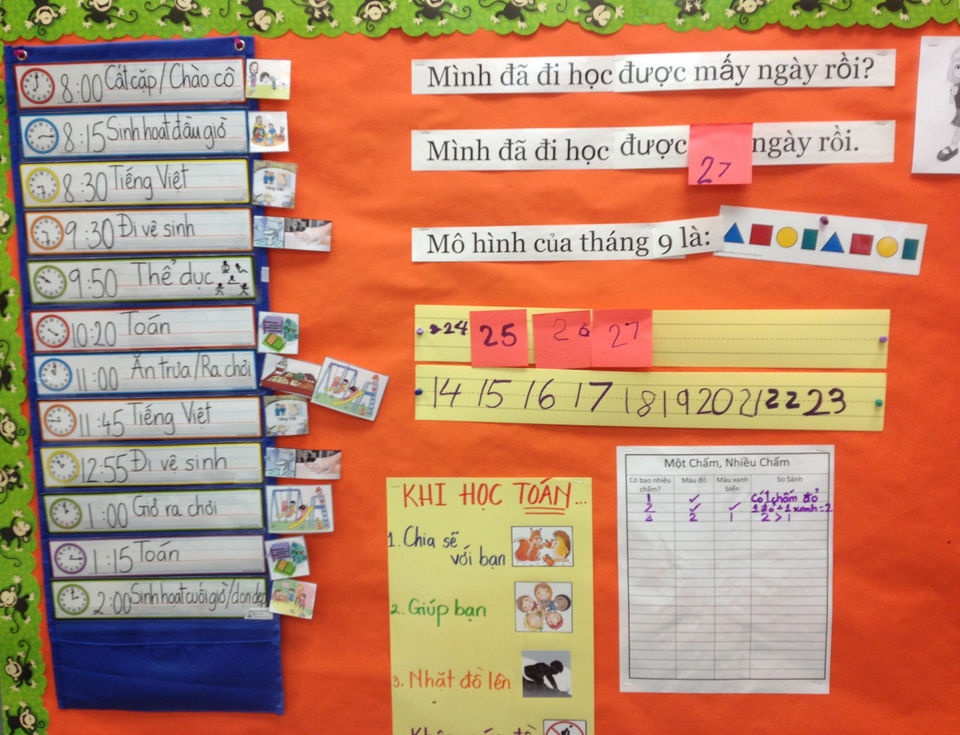 8:00 Cất cặp/Chào cô
8:15 Sinh hoạt đầu giờ
8:30 Tiếng Việt
9:30 Đi vệ sinh
9:50 Thể dục
10:20 Toán
11:00 Ăn trưa/Ra chơi
11:45 Tiếng Việt
12:55 Đi vệ sinh
1:00 Giờ ra chơi
1:15 Toán
2:00 Sinh hoạt cuối giờ/dọn dẹp
Mình đã đi học được mấy ngày rồi?
Mình đã đi học được 27 ngày rồi.
Mô hình của tháng 9 là:
24 25 26 27
14 15 16 17 18 19 20 21 22 23
KHI HỌC TOÁN...
1. Chia sẽ
với bạn
2. Giúp bạn
3. Nhặt đồ lên
Một Chấm, Nhiều Chấm
Có bao nhiêu chấm? Màu đỏ Màu xanh biển So Sánh
1 ✓ Có 1 chấm đỏ
2 ✓ ✓ 1 đỏ + 1 xanh = 2
3 2 1 2 > 1